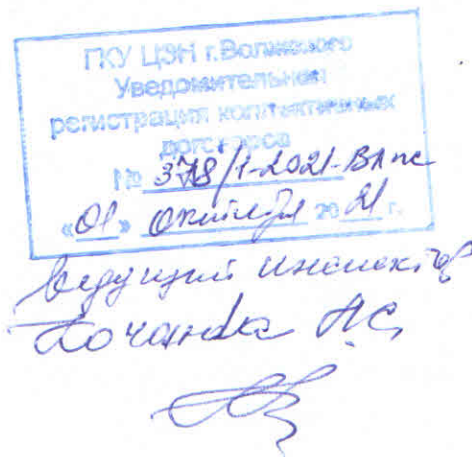 ГКУ ЦЗН г.Волжского
Уведомительная
регистрация коллективных
договоров
№ 378/1-2021-ВЛпс
«01» октября 2021 г.
ведущий инспектор
А.С.